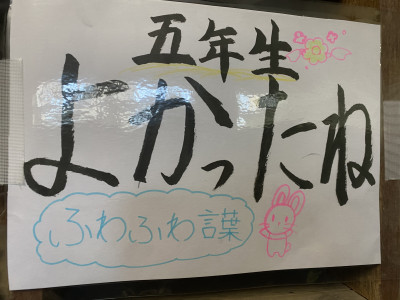 五年生
よかったね
ふわふわ言葉